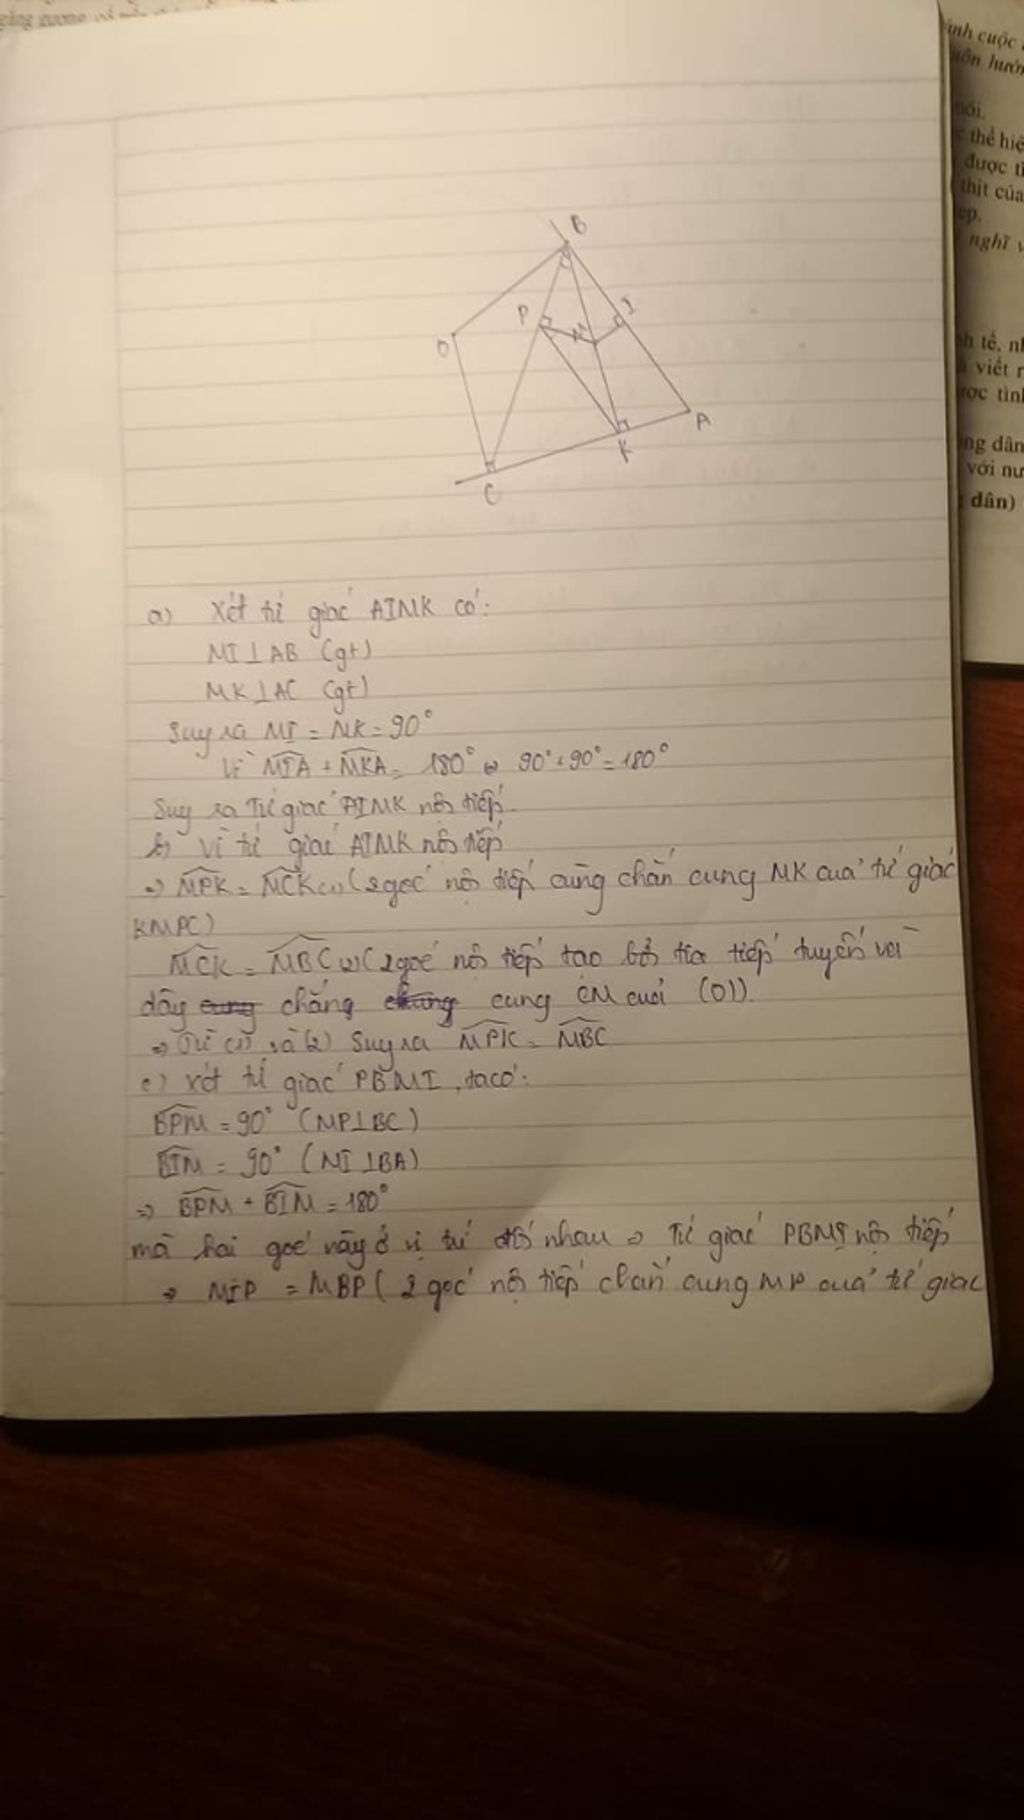 găng gương
ình cuộc
uôn hướn
nói.
thể hiệ
được tì
thịt của
ẹp.
nghĩ v
B
P
I
M
O
A
K
C
h tế, nh
viết r
ược tìn
ng dân
với nư
dân)
a) Xét tứ giác AIMK có:
MI⊥AB (gt)
MK⊥AC (gt)
Suy ra MI = MK = 90°
Vì MIA + MKA = 180° 90° + 90° = 180°
Suy ra Tứ giác AIMK nội tiếp.
b) Vì tứ giác AIMK nội tiếp
=> MPK = MCK (1) (2 góc nội tiếp cùng chắn cung MK của tứ giác
KMPC)
MCK = MBC (2) (2 góc nội tiếp tạo bởi tia tiếp tuyến với
dây cung chắng chung cung CM cuả (O)).
=> Từ (1) và (2) Suy ra MPK = MBC
c) Xét tứ giác PBMI, ta có:
BPM = 90° (MP⊥BC)
BIM = 90° (MI⊥BA)
=> BPM + BIM = 180°
mà hai góc này ở vị trí đối nhau => Tứ giác PBMI nội tiếp
=> MIP = MBP (2 góc nội tiếp chắn cung MP cuả tứ giác